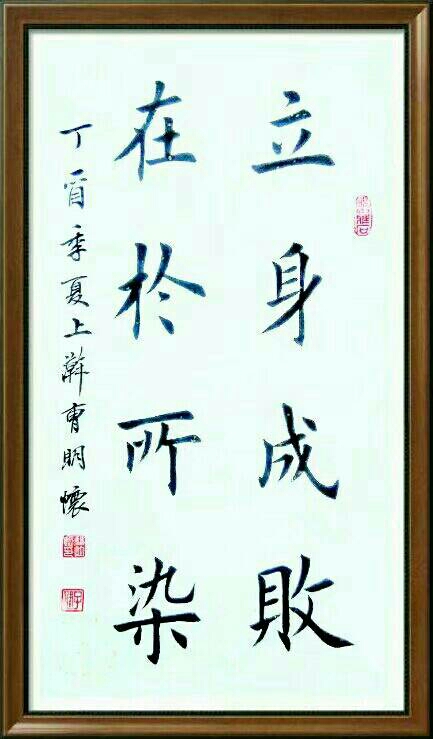 立身成敗
在於所染
丁酉季夏上澣曹明懷